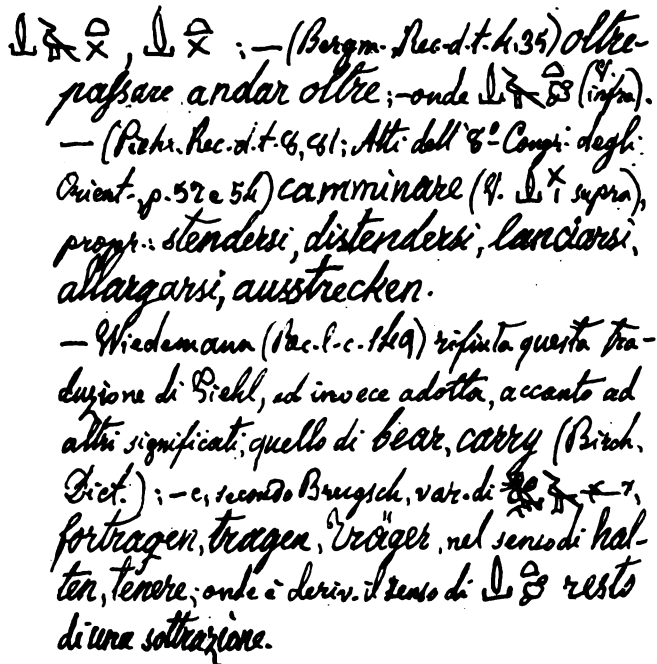 ; — (Bergm. Rec. d. t. 4.35) oltre-
passare andar oltre; — onde (V. infra).
— (Piehl. Rec. d. t. 8, 81; Atti dell' 8º Congr. degli
Orient. p. 52 e 54) camminare (V. supra),
propr.: stendersi, distendersi, lanciarsi,
allargarsi, ausstrecken.
— Wiedemann (Rec. l. c. 149) rifiuta questa tra-
duzione di Piehl, ed invece adotta, accanto ad
altri significati, quello di bear, carry (Birch.
Dict.); — e, secondo Brugsch, var. di
fortragen, tragen, Träger, nel senso di hal-
ten, tenere; onde è deriv. il senso di resto
di una sottrazione.